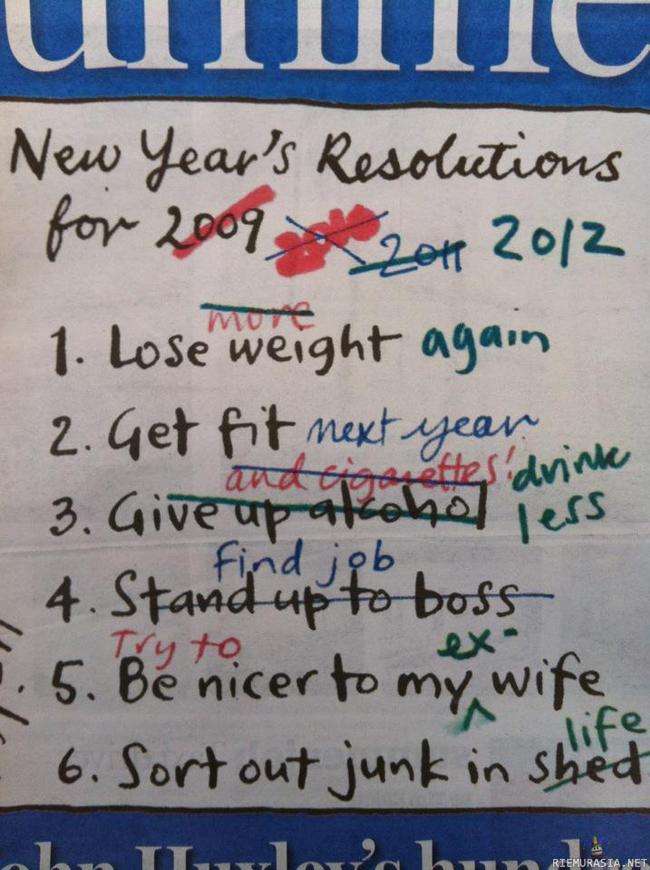 New Year's Resolutions
for 2009 2011 2012
more
1. Lose weight again
2. Get fit next year
and cigarettes! drink
3. Give up alcohol less
find job
4. Stand up to boss
Try to ex-
5. Be nicer to my wife
life
6. Sort out junk in shed
ohn Huxley's hund
RIEMURASIA.NET